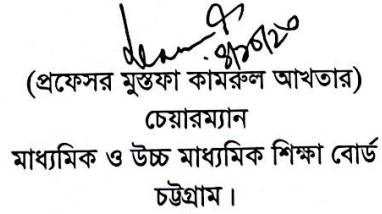 (প্রফেসর মুস্তফা কামরুল আখতার)
চেয়ারম্যান
মাধ্যমিক ও উচ্চ মাধ্যমিক শিক্ষা বোর্ড
চট্টগ্রাম।